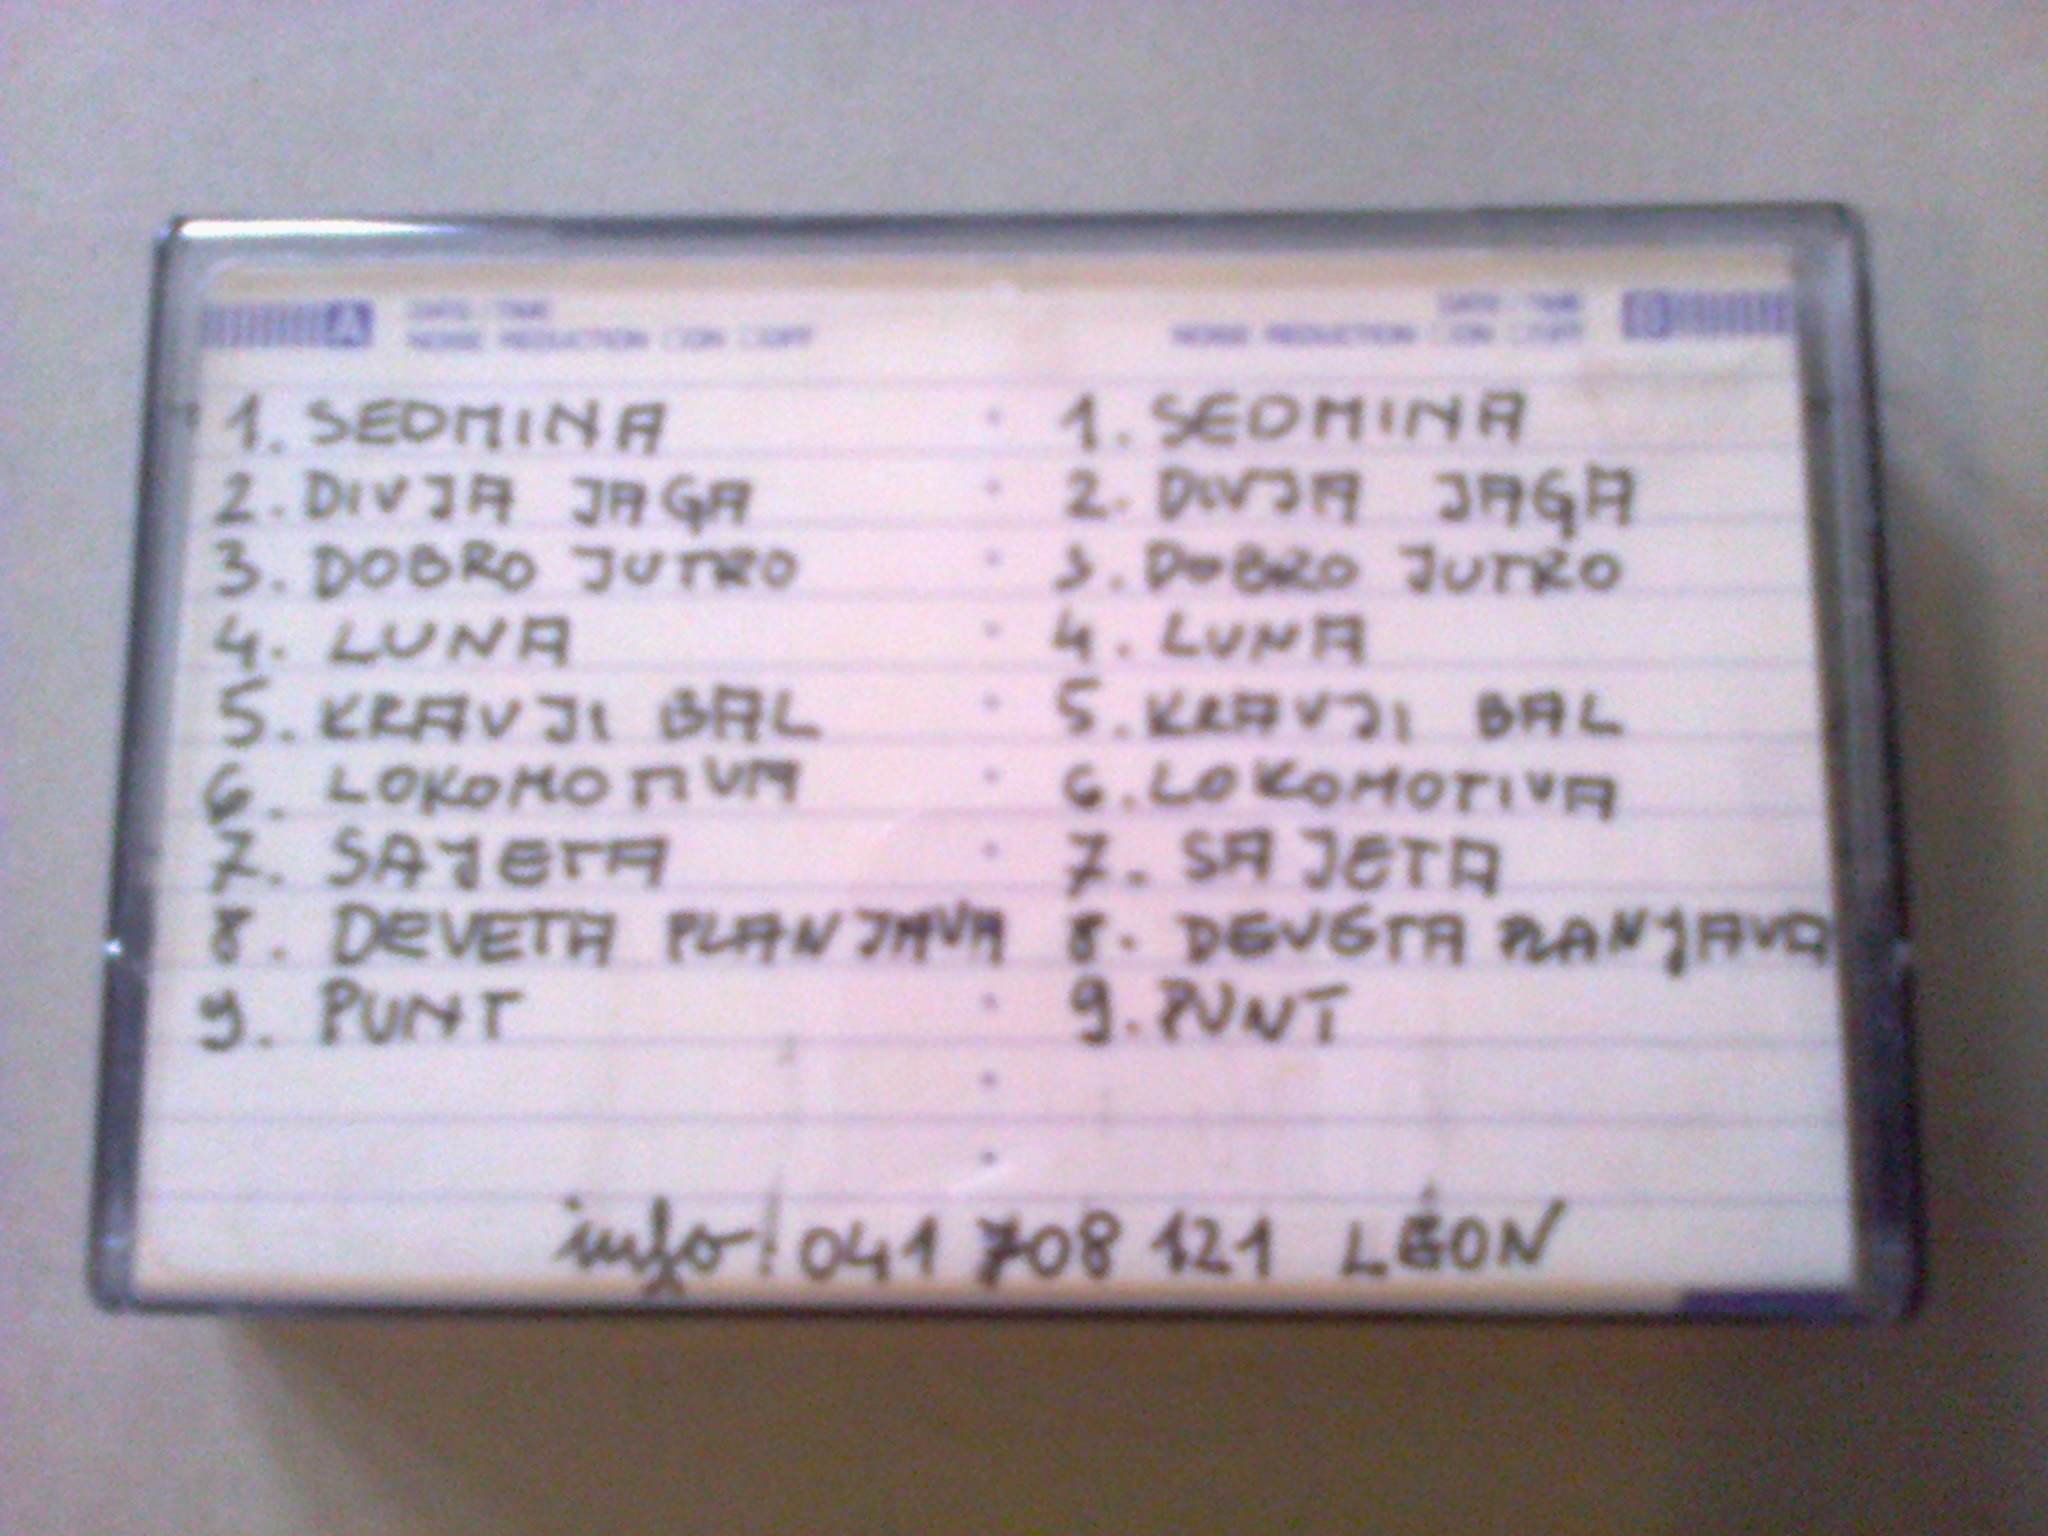 A DATE/TIME
NOISE REDUCTION □ON □OFF
DATE/TIME B
NOISE REDUCTION □ON □OFF
1. SEDMINA
2. DIVJA JAGA
3. DOBRO JUTRO
4. LUNA
5. KRAVJI BAL
6. LOKOMOTIVA
7. SAJETA
8. DEVETA PLANJAVA
9. PUNT
1. SEDMINA
2. DIVJA JAGA
3. DOBRO JUTRO
4. LUNA
5. KRAVJI BAL
6. LOKOMOTIVA
7. SAJETA
8. DEVETA PLANJAVA
9. PUNT
info! 041 708 121 LÉON